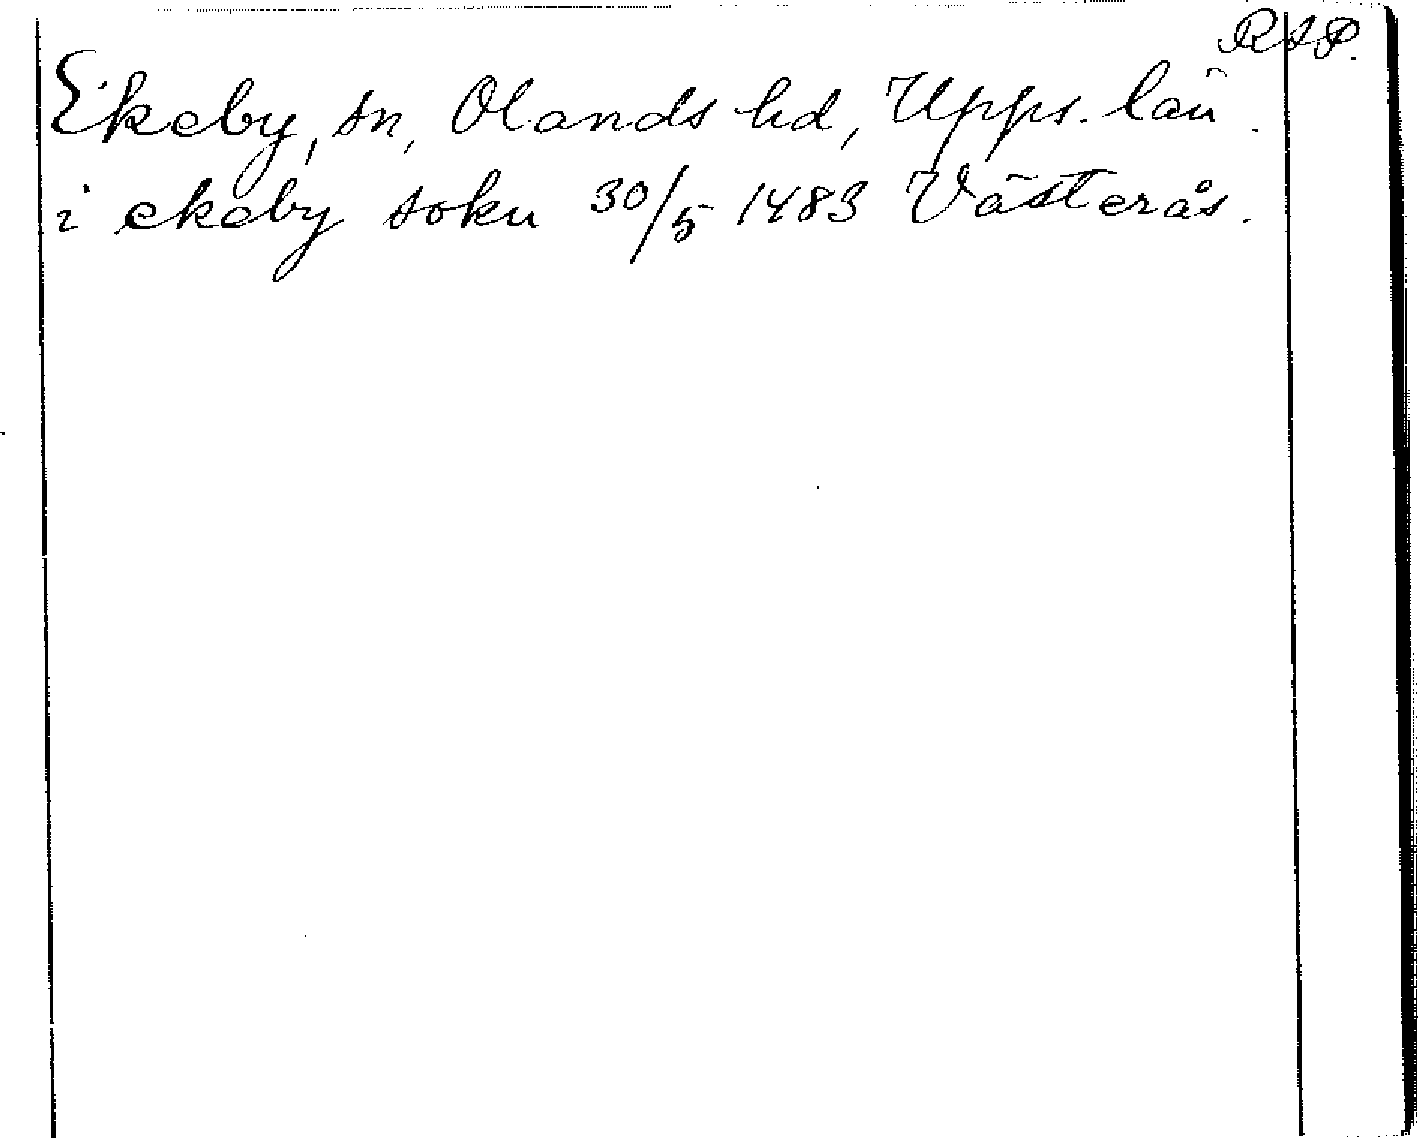 RAP.
Ekeby, sn, Olands hd, Upps. län.
i ekeby sokn 30/5 1483 Västerås.